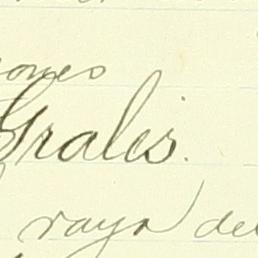 ones
Grales.
raya de